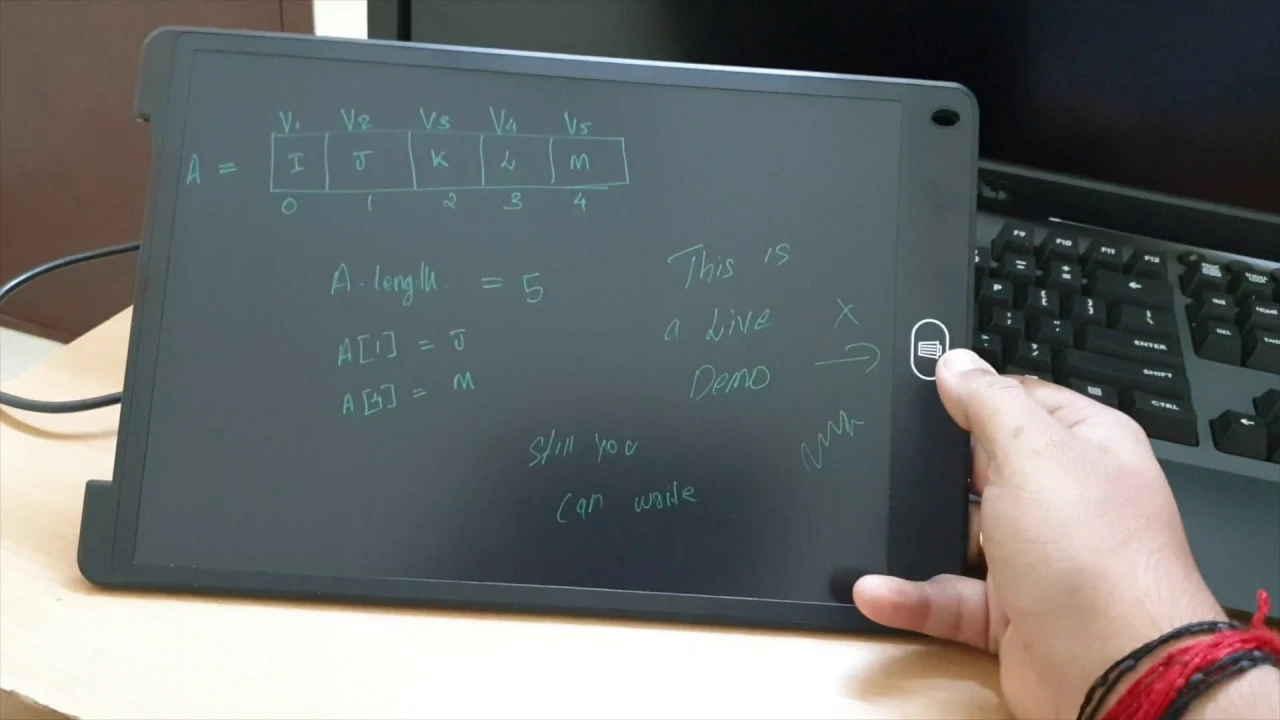 V1 V2 V3 V4 V5
A = I J K L M
0 1 2 3 4
A.length = 5
A[1] = J
A[4] = M
This is
a Live
Demo
X
Still you
can write
F9 F10 F11 F12
P
ENTER
SHIFT
CTRL
INS HOME
DEL END